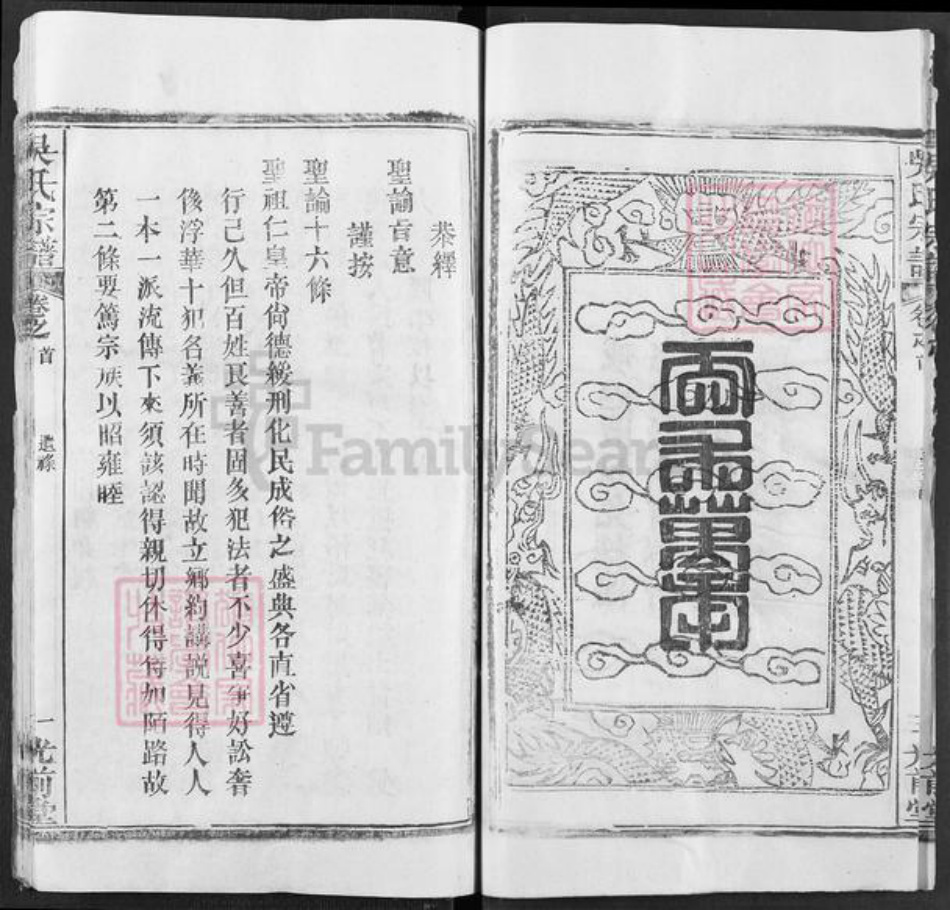 吳氏宗譜
恭繹
聖諭言意
謹按
聖諭十六條
聖祖仁皇帝尚德緩刑化民成俗之盛典各直省遵
行已久但百姓良善者固多犯法者不少喜爭好訟奢
後浮華十犯名義所在時聞故立鄉約講說見得人人
一本一派流傳下來須該認得親切休得待如陌路故
第二條要篤宗族以昭雍睦
吳氏宗譜
卷之首
一
光前堂
FamilySearch